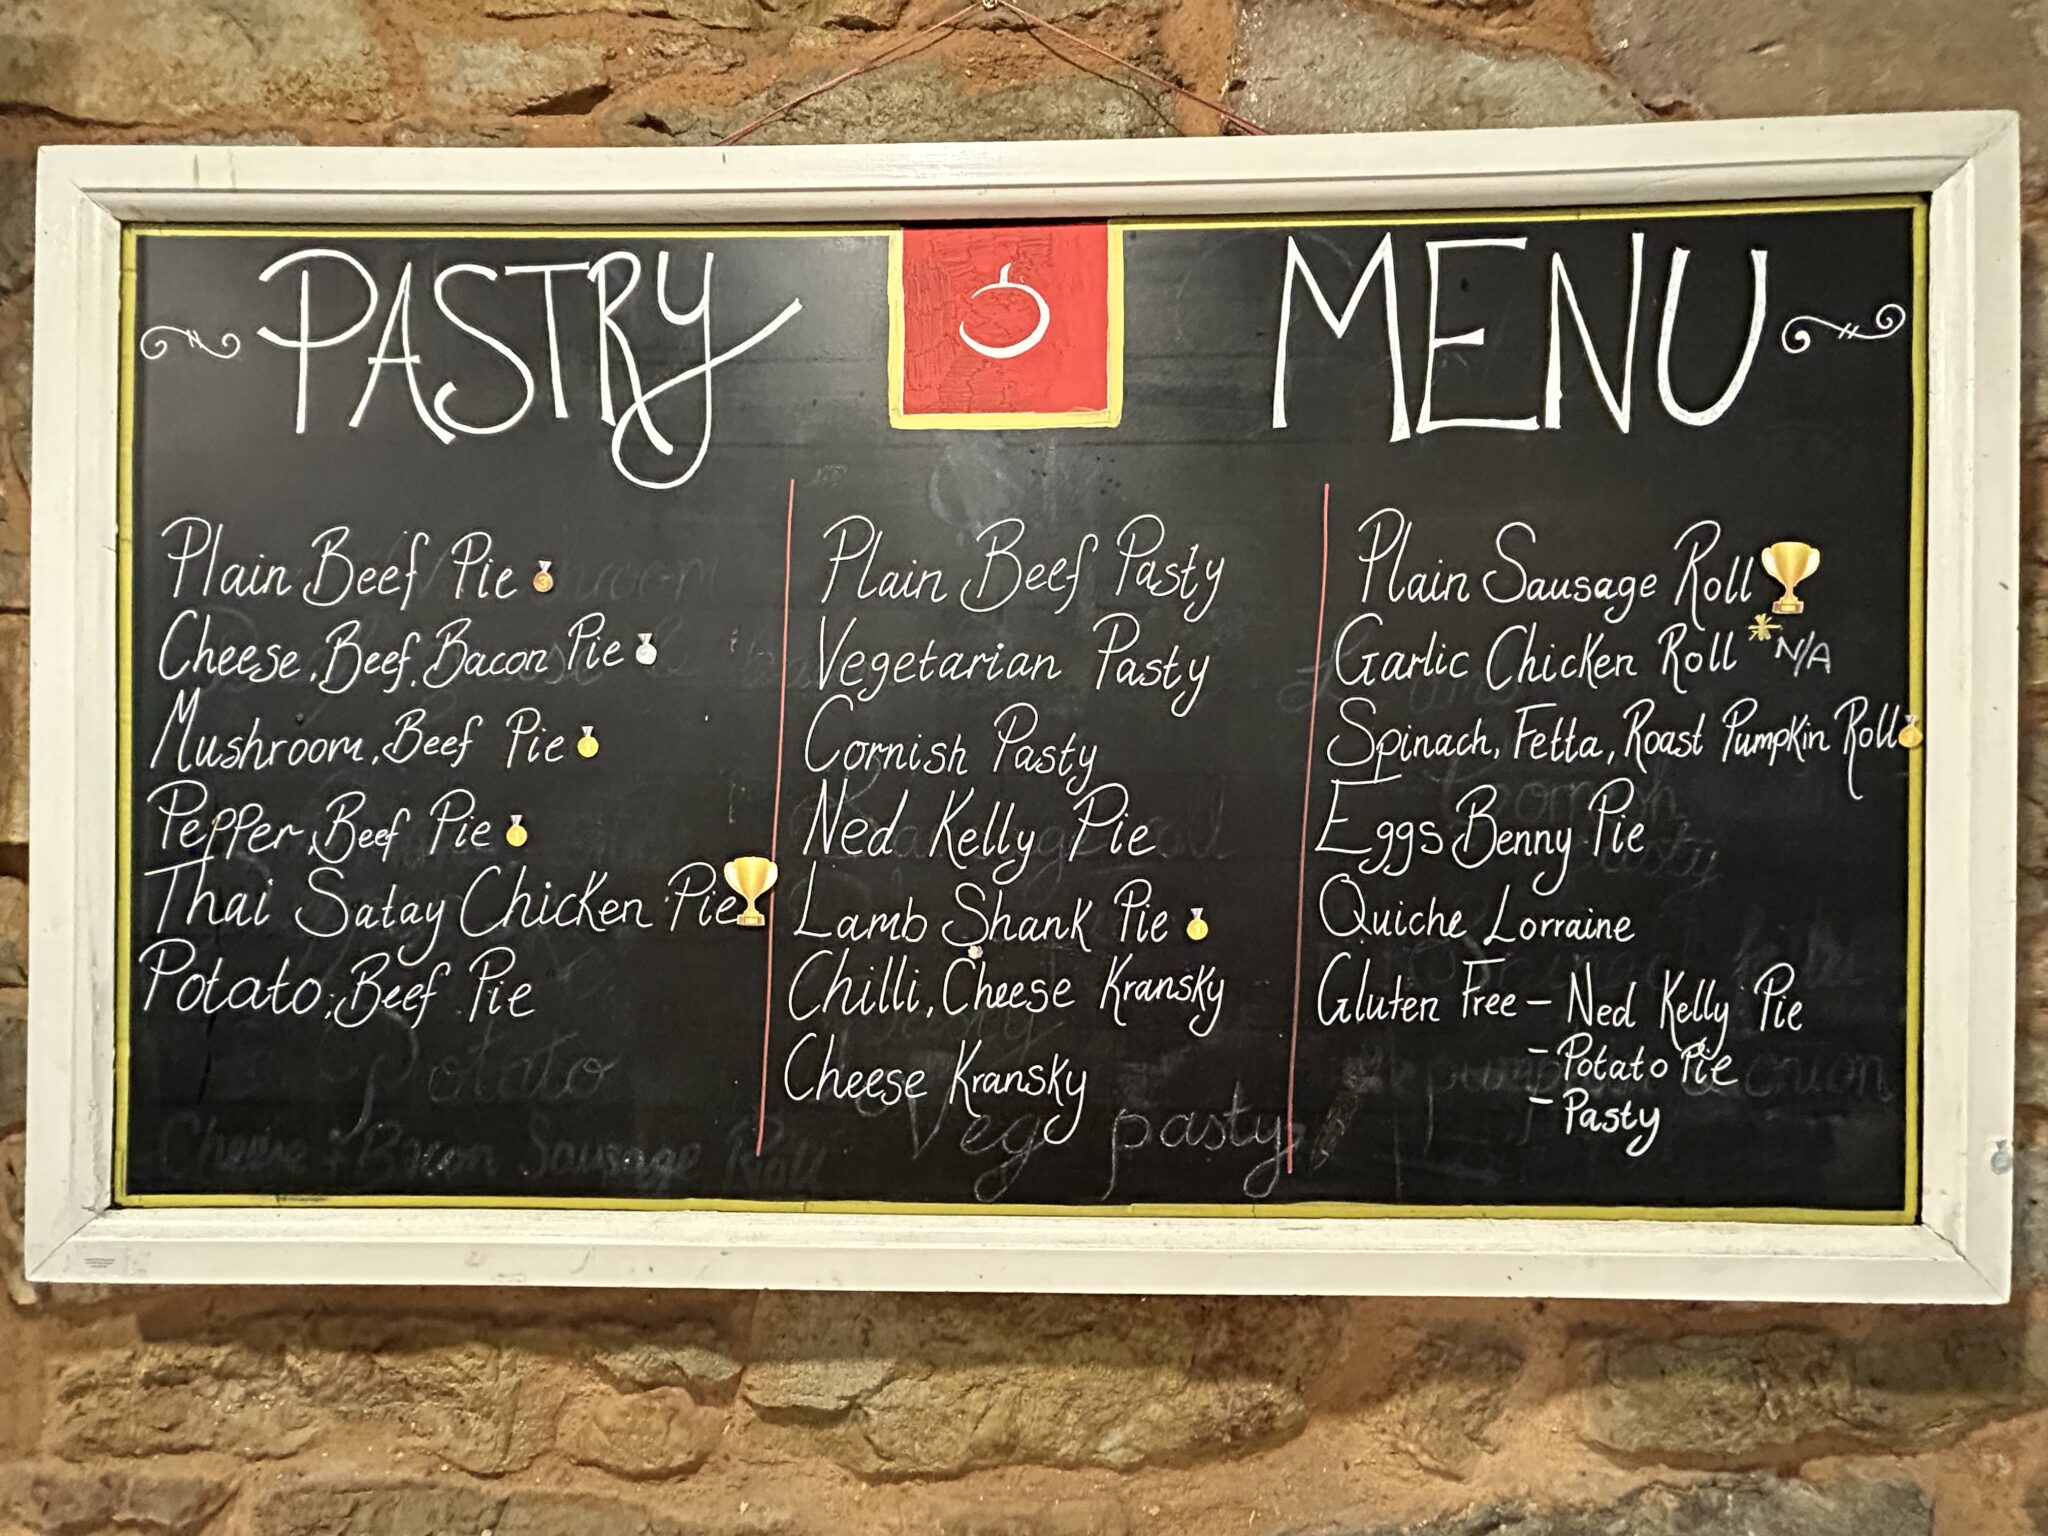 PASTRY MENU
Plain Beef Pie
Cheese, Beef, Bacon Pie
Mushroom, Beef Pie
Pepper, Beef Pie
Thai Satay Chicken Pie
Potato, Beef Pie
Potato
Cheese + Bacon Sausage Roll
Plain Beef Pasty
Vegetarian Pasty
Cornish Pasty
Ned Kelly Pie
Lamb Shank Pie
Chilli, Cheese Kransky
Cheese Kransky
Veg pasty
Plain Sausage Roll
Garlic Chicken Roll *N/A
Spinach, Fetta, Roast Pumpkin Roll
Eggs Benny Pie
Quiche Lorraine
Gluten Free - Ned Kelly Pie
- Potato Pie
- Pasty